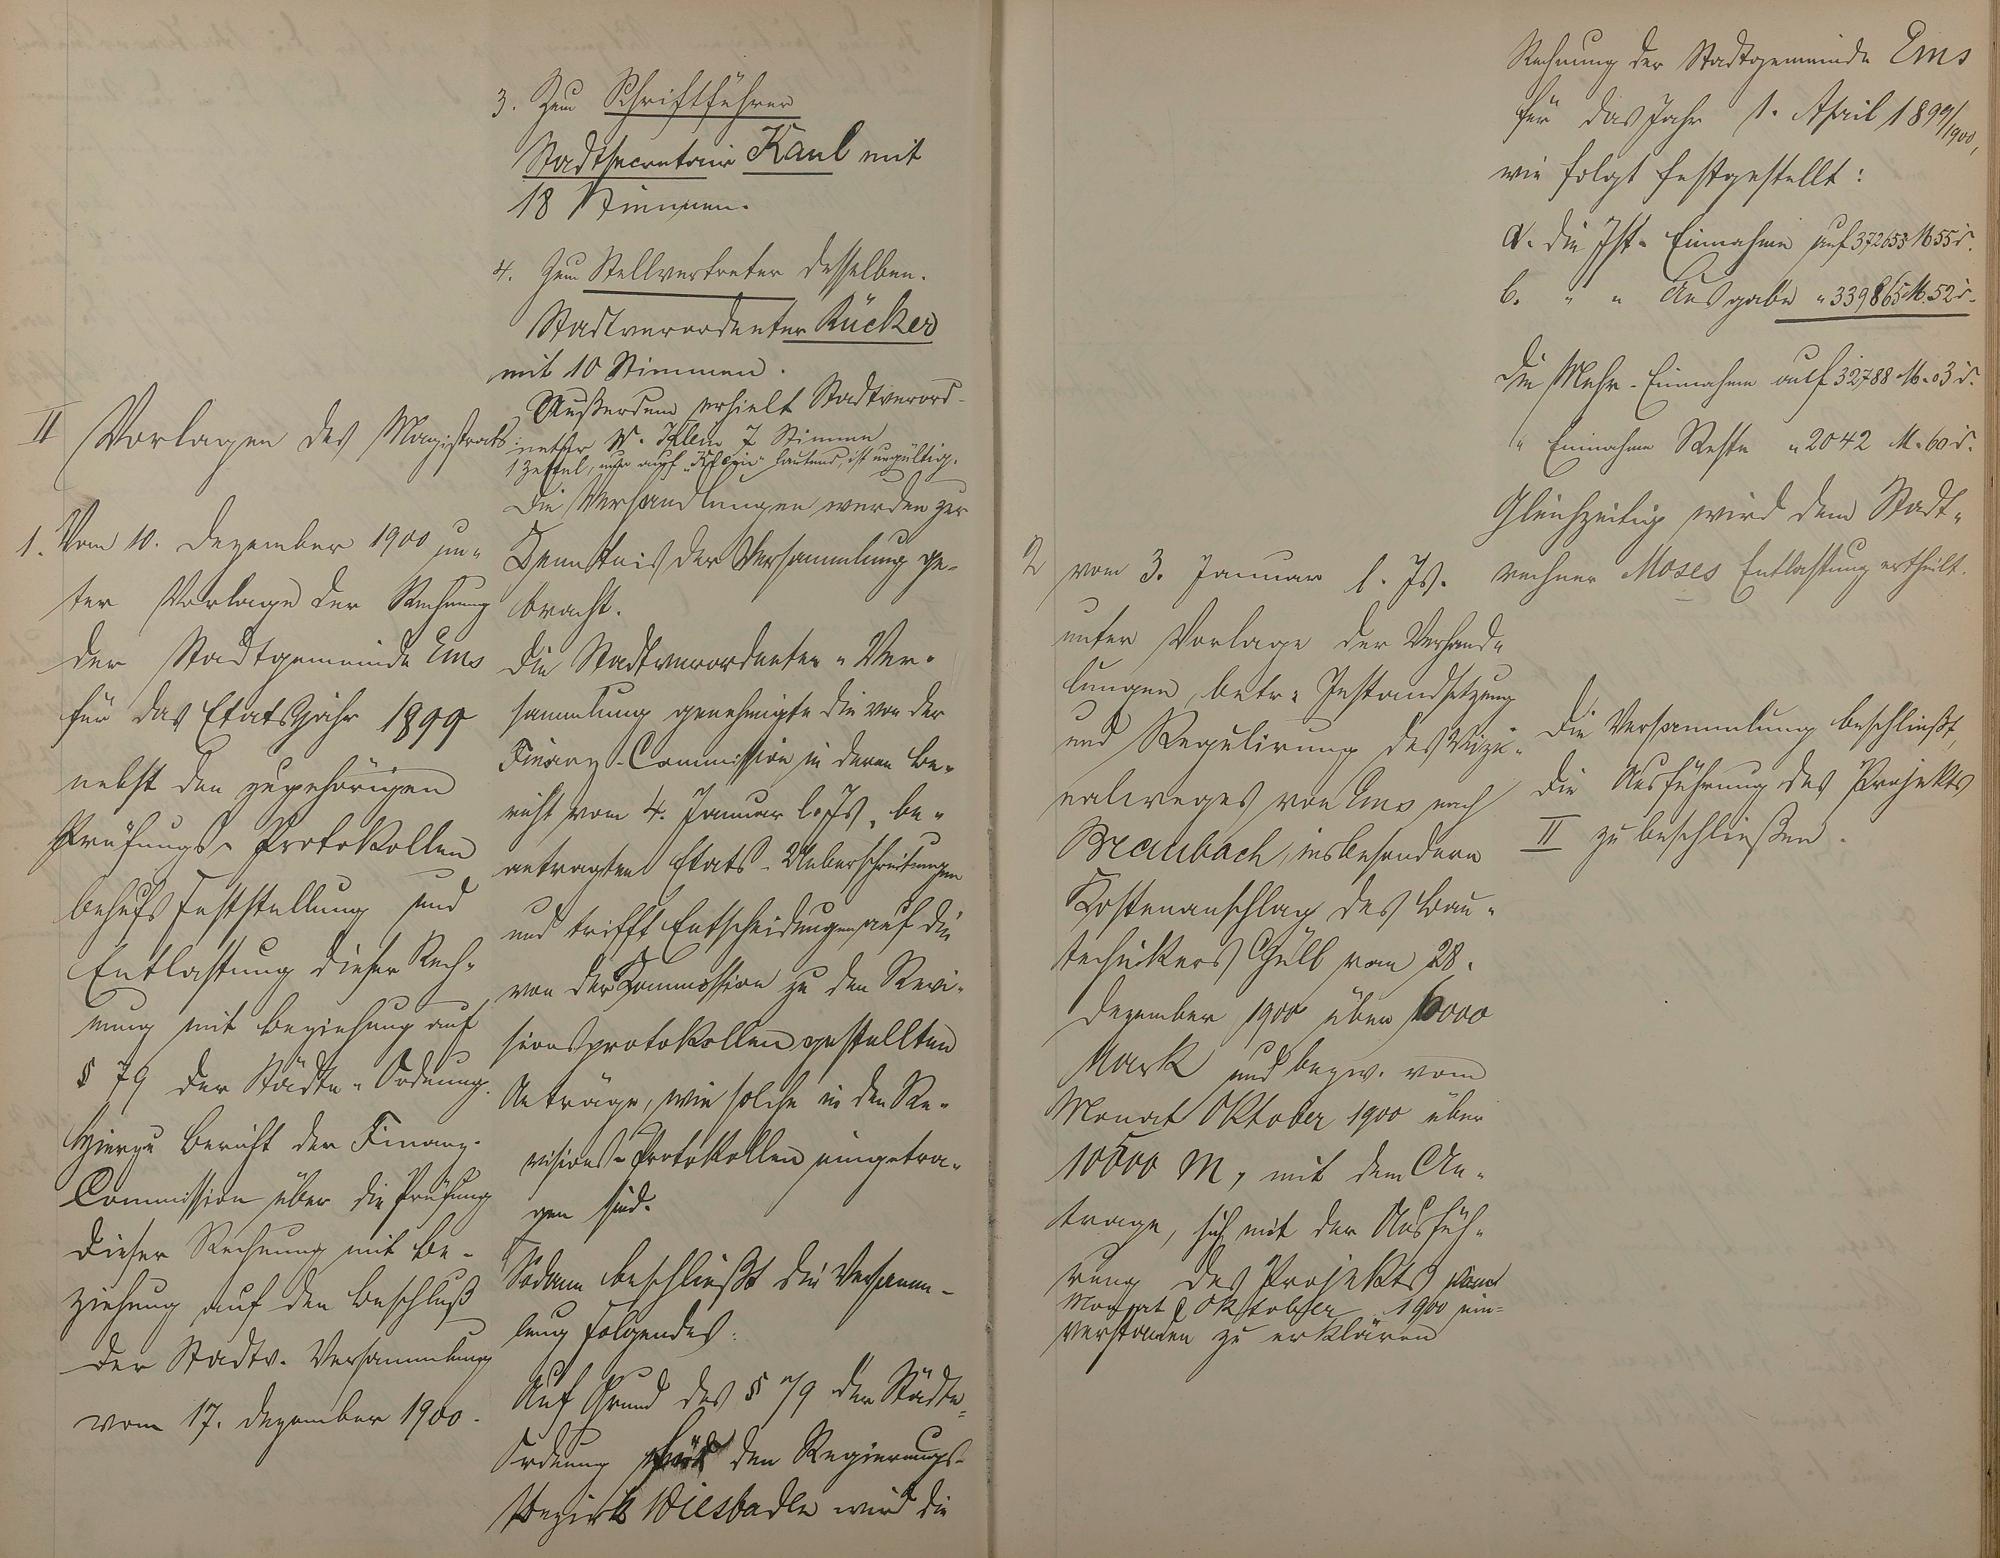 II Vorlagen des Magistrats:
1. Vom 10. Dezember 1900 un-
ter Vorlage der Rechnung
der Stadtgemeinde Ems
für das Etatsjahr 1899
nebst den zugehörigen
Prüfungs-Protokollen
behufs Feststellung und
Entlastung dieser Rech-
nung mit Beziehung auf
§ 79 der Städte-Ordnung.
Hierzu Bericht der Finanz-
Commission über die Prüfung
dieser Rechnung mit Be-
ziehung auf den Beschluß
der Stadtv. Versammlung
vom 17. Dezember 1900.
3. Zum Schriftführer
Stadtsecretair Kaul mit
18 Stimmen.
4. Zum Stellvertreter desselben.
Stadtverordneter Rücker
mit 10 Stimmen.
Außerdem erhielt Stadtverord-
neter W. Klein 7 Stimmen
1 Zettel, nur auf "Klein" lautend, ist ungültig.
Die Verhandlungen werden zur
Kenntnis der Versammlung ge-
bracht.
Die Stadtverordneten-Ver-
sammlung genehmigte die von der
Finanz-Commission in deren Be-
richt vom 4. Januar l. Js. be-
antragten Etats-Ueberschreitungen
und trifft Entscheidungen auf die
von der Kommission zu den Revi-
sionsprotokollen gestellten
Anträge, wie solche in den Re-
visions-Protokollen eingetra-
gen sind.
Sodann beschließt die Versamm-
lung folgendes:
Auf Grund des § 79 der Städte-
Ordnung für den Regierungs-
Bezirk Wiesbaden wird die
Rechnung der Stadtgemeinde Ems
für das Jahr 1. April 1899/1900,
wie folgt festgestellt:
a. die Ist-Einnahme auf 372653 M 55 d.
b. " " Ausgabe " 339865 M. 52 d.
die Mehr-Einnahme auf 32788 M. 03 d.
" Einnahme Reste " 2042 M. 60 d.
Gleichzeitig wird dem Stadt-
rechner Moses Entlastung ertheilt.
2 vom 3. Januar l. Js.
unter Vorlage der Verhand-
lungen, betr. Instandsetzung
und Regulirung des Vizi-
nalweges von Ems nach
Braubach, insbesondere
Kostenanschlag des Bau-
technikers Gull vom 28.
Dezember 1900 über 6000
Mark und bezw. vom
Monat Oktober 1900 über
10500 M, mit dem An-
trage, sich mit der Ausfüh-
rung des Projekts vom
Monat Oktober 1900 ein-
verstanden zu erklären
Die Versammlung beschließt,
die Ausführung des Projekts
II zu beschließen.